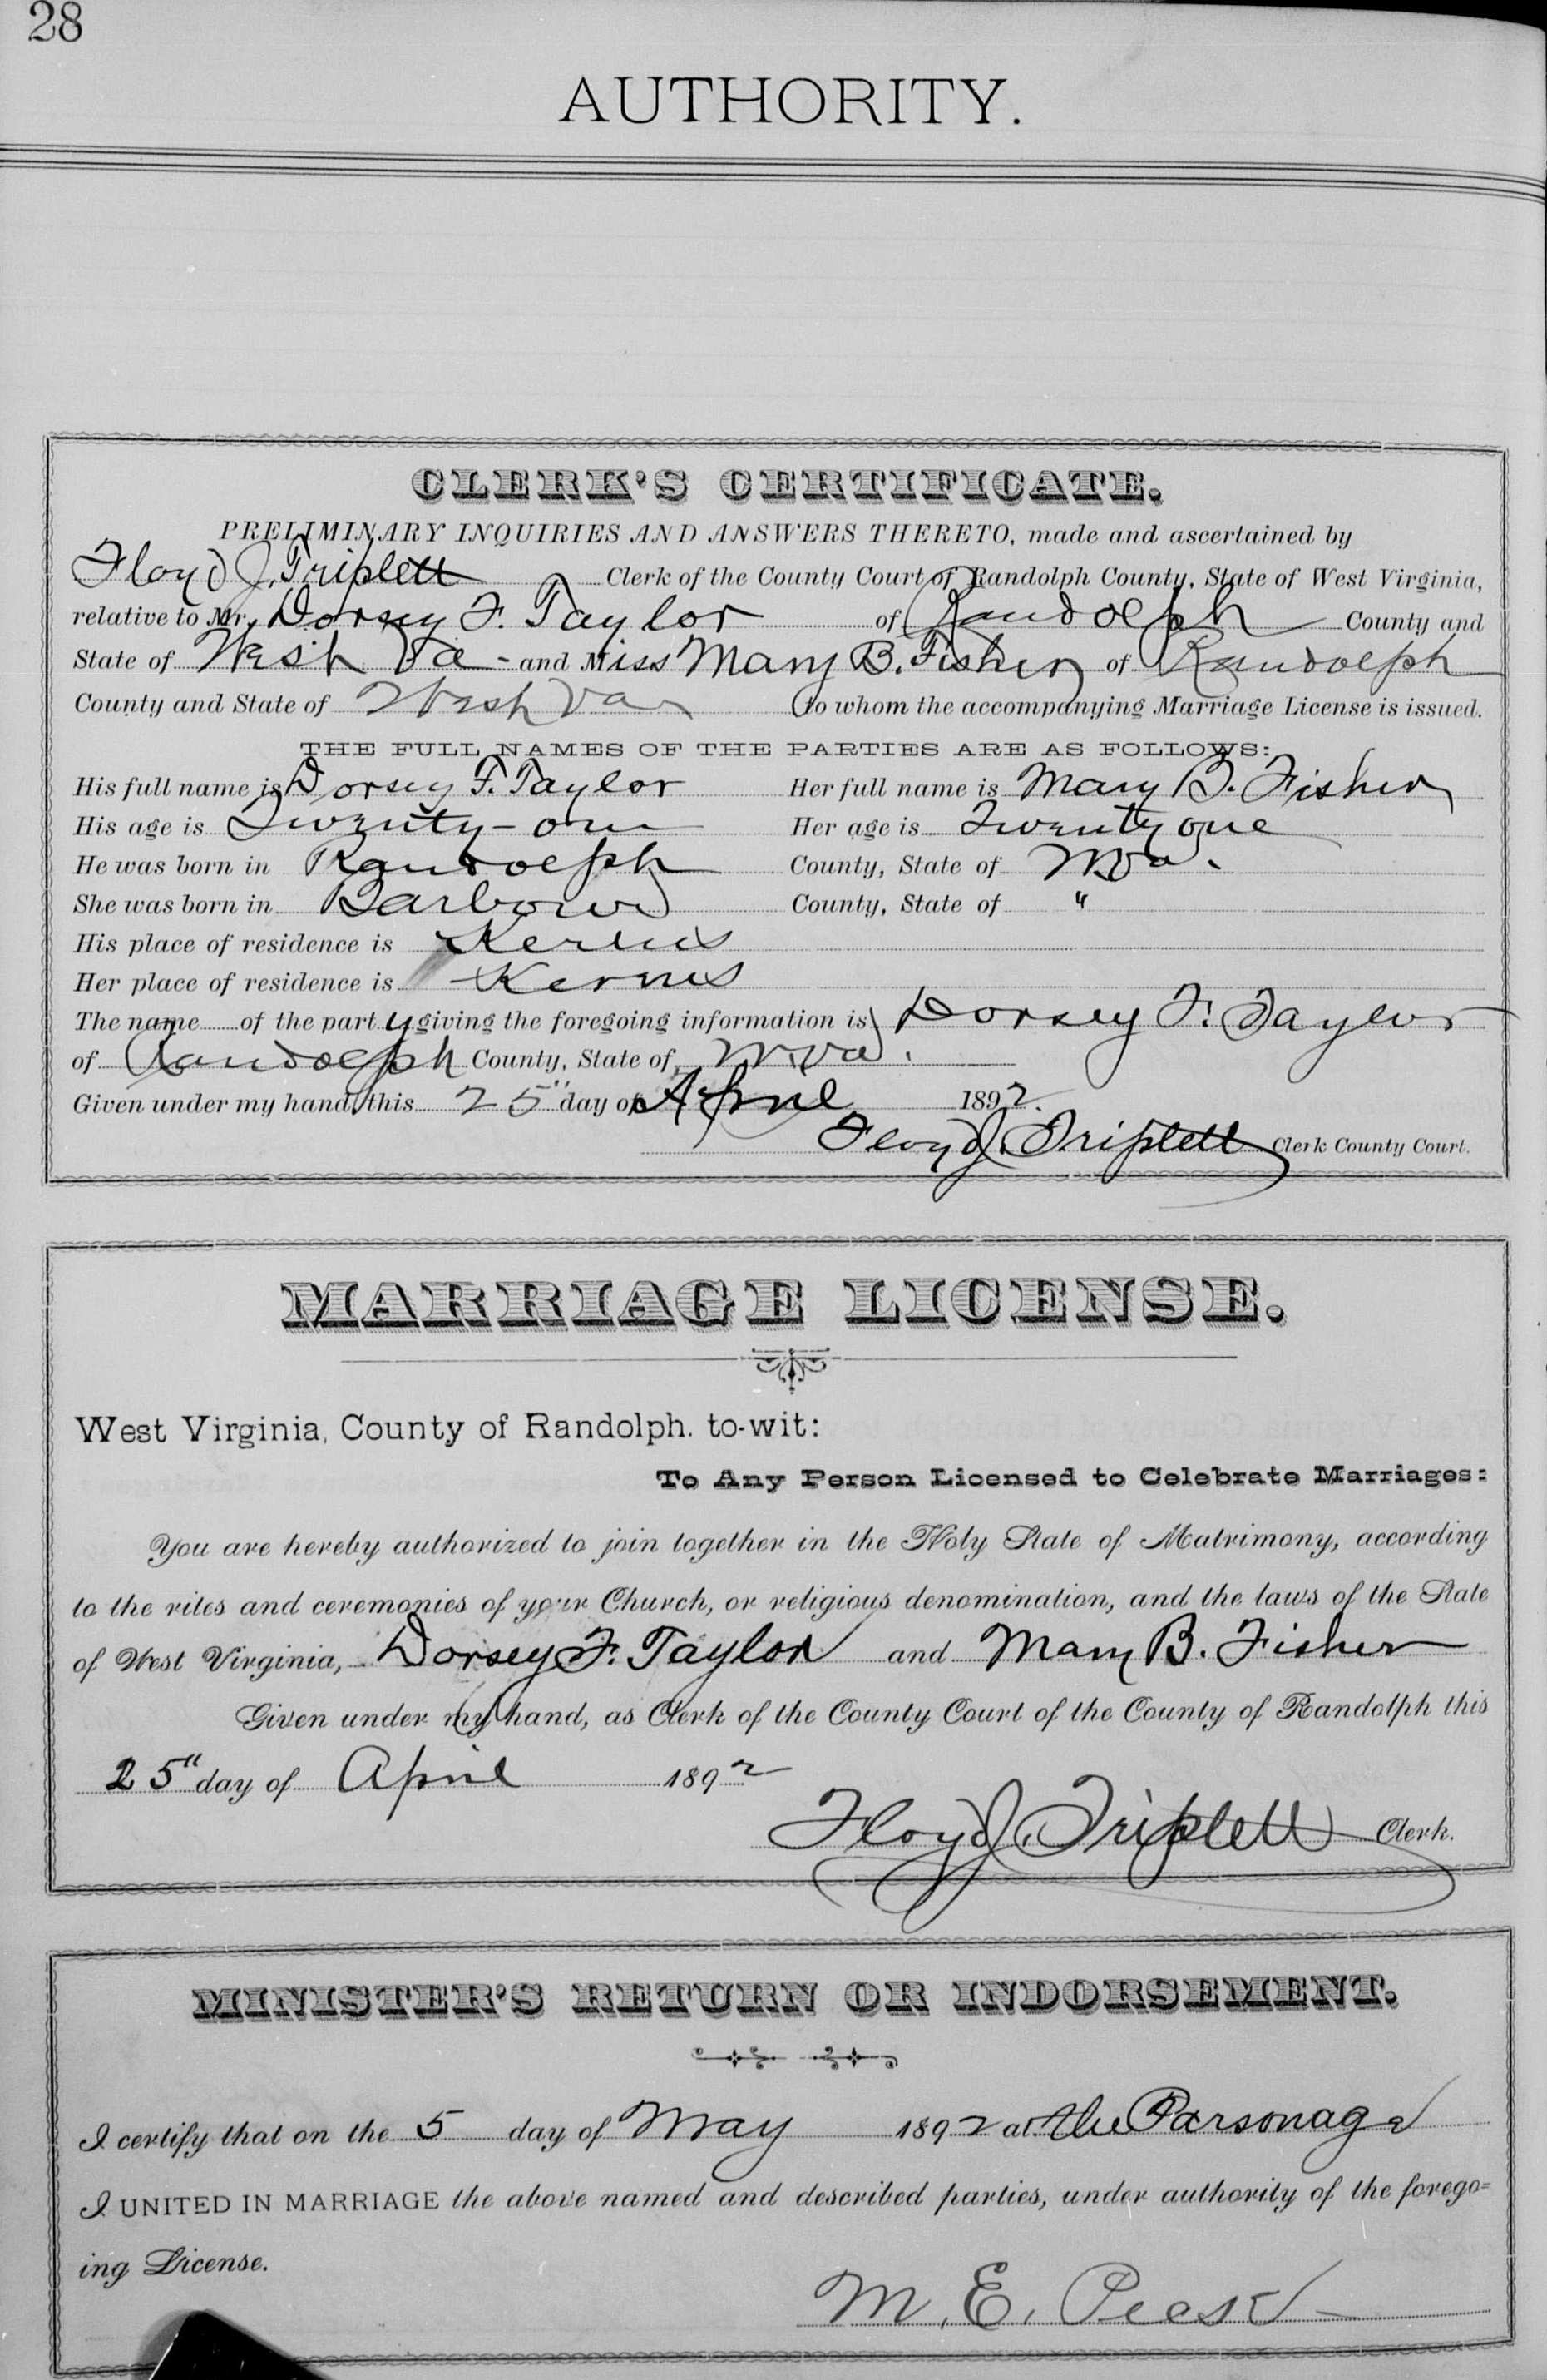 28
AUTHORITY.
CLERK'S CERTIFICATE.
PRELIMINARY INQUIRIES AND ANSWERS THERETO, made and ascertained by
Floyd J. Triplett Clerk of the County Court of Randolph County, State of West Virginia,
relative to Mr. Dorsey F. Taylor of Randolph County and
State of West Va - and Miss Mary B. Fisher of Randolph
County and State of West Va to whom the accompanying Marriage License is issued.
THE FULL NAMES OF THE PARTIES ARE AS FOLLOWS:
His full name is Dorsey F. Taylor Her full name is Mary B. Fisher
His age is Twenty-one Her age is Twenty one
He was born in Randolph County, State of W.Va.
She was born in Barbour County, State of "
His place of residence is Kerens
Her place of residence is Kerens
The name of the party giving the foregoing information is Dorsey F. Taylor
of Randolph County, State of W.Va.
Given under my hand, this 25" day of April 1892.
Floyd J. Triplett Clerk County Court.
MARRIAGE LICENSE.
West Virginia, County of Randolph. to-wit:
To Any Person Licensed to Celebrate Marriages:
You are hereby authorized to join together in the Holy State of Matrimony, according
to the rites and ceremonies of your Church, or religious denomination, and the laws of the State
of West Virginia, Dorsey F. Taylor and Mary B. Fisher
Given under my hand, as Clerk of the County Court of the County of Randolph this
25" day of April 1892
Floyd J. Triplett Clerk.
MINISTER'S RETURN OR INDORSEMENT.
I certify that on the 5 day of May 1892 at the Parsonage
I UNITED IN MARRIAGE the above named and described parties, under authority of the forego=
ing License.
M. E.